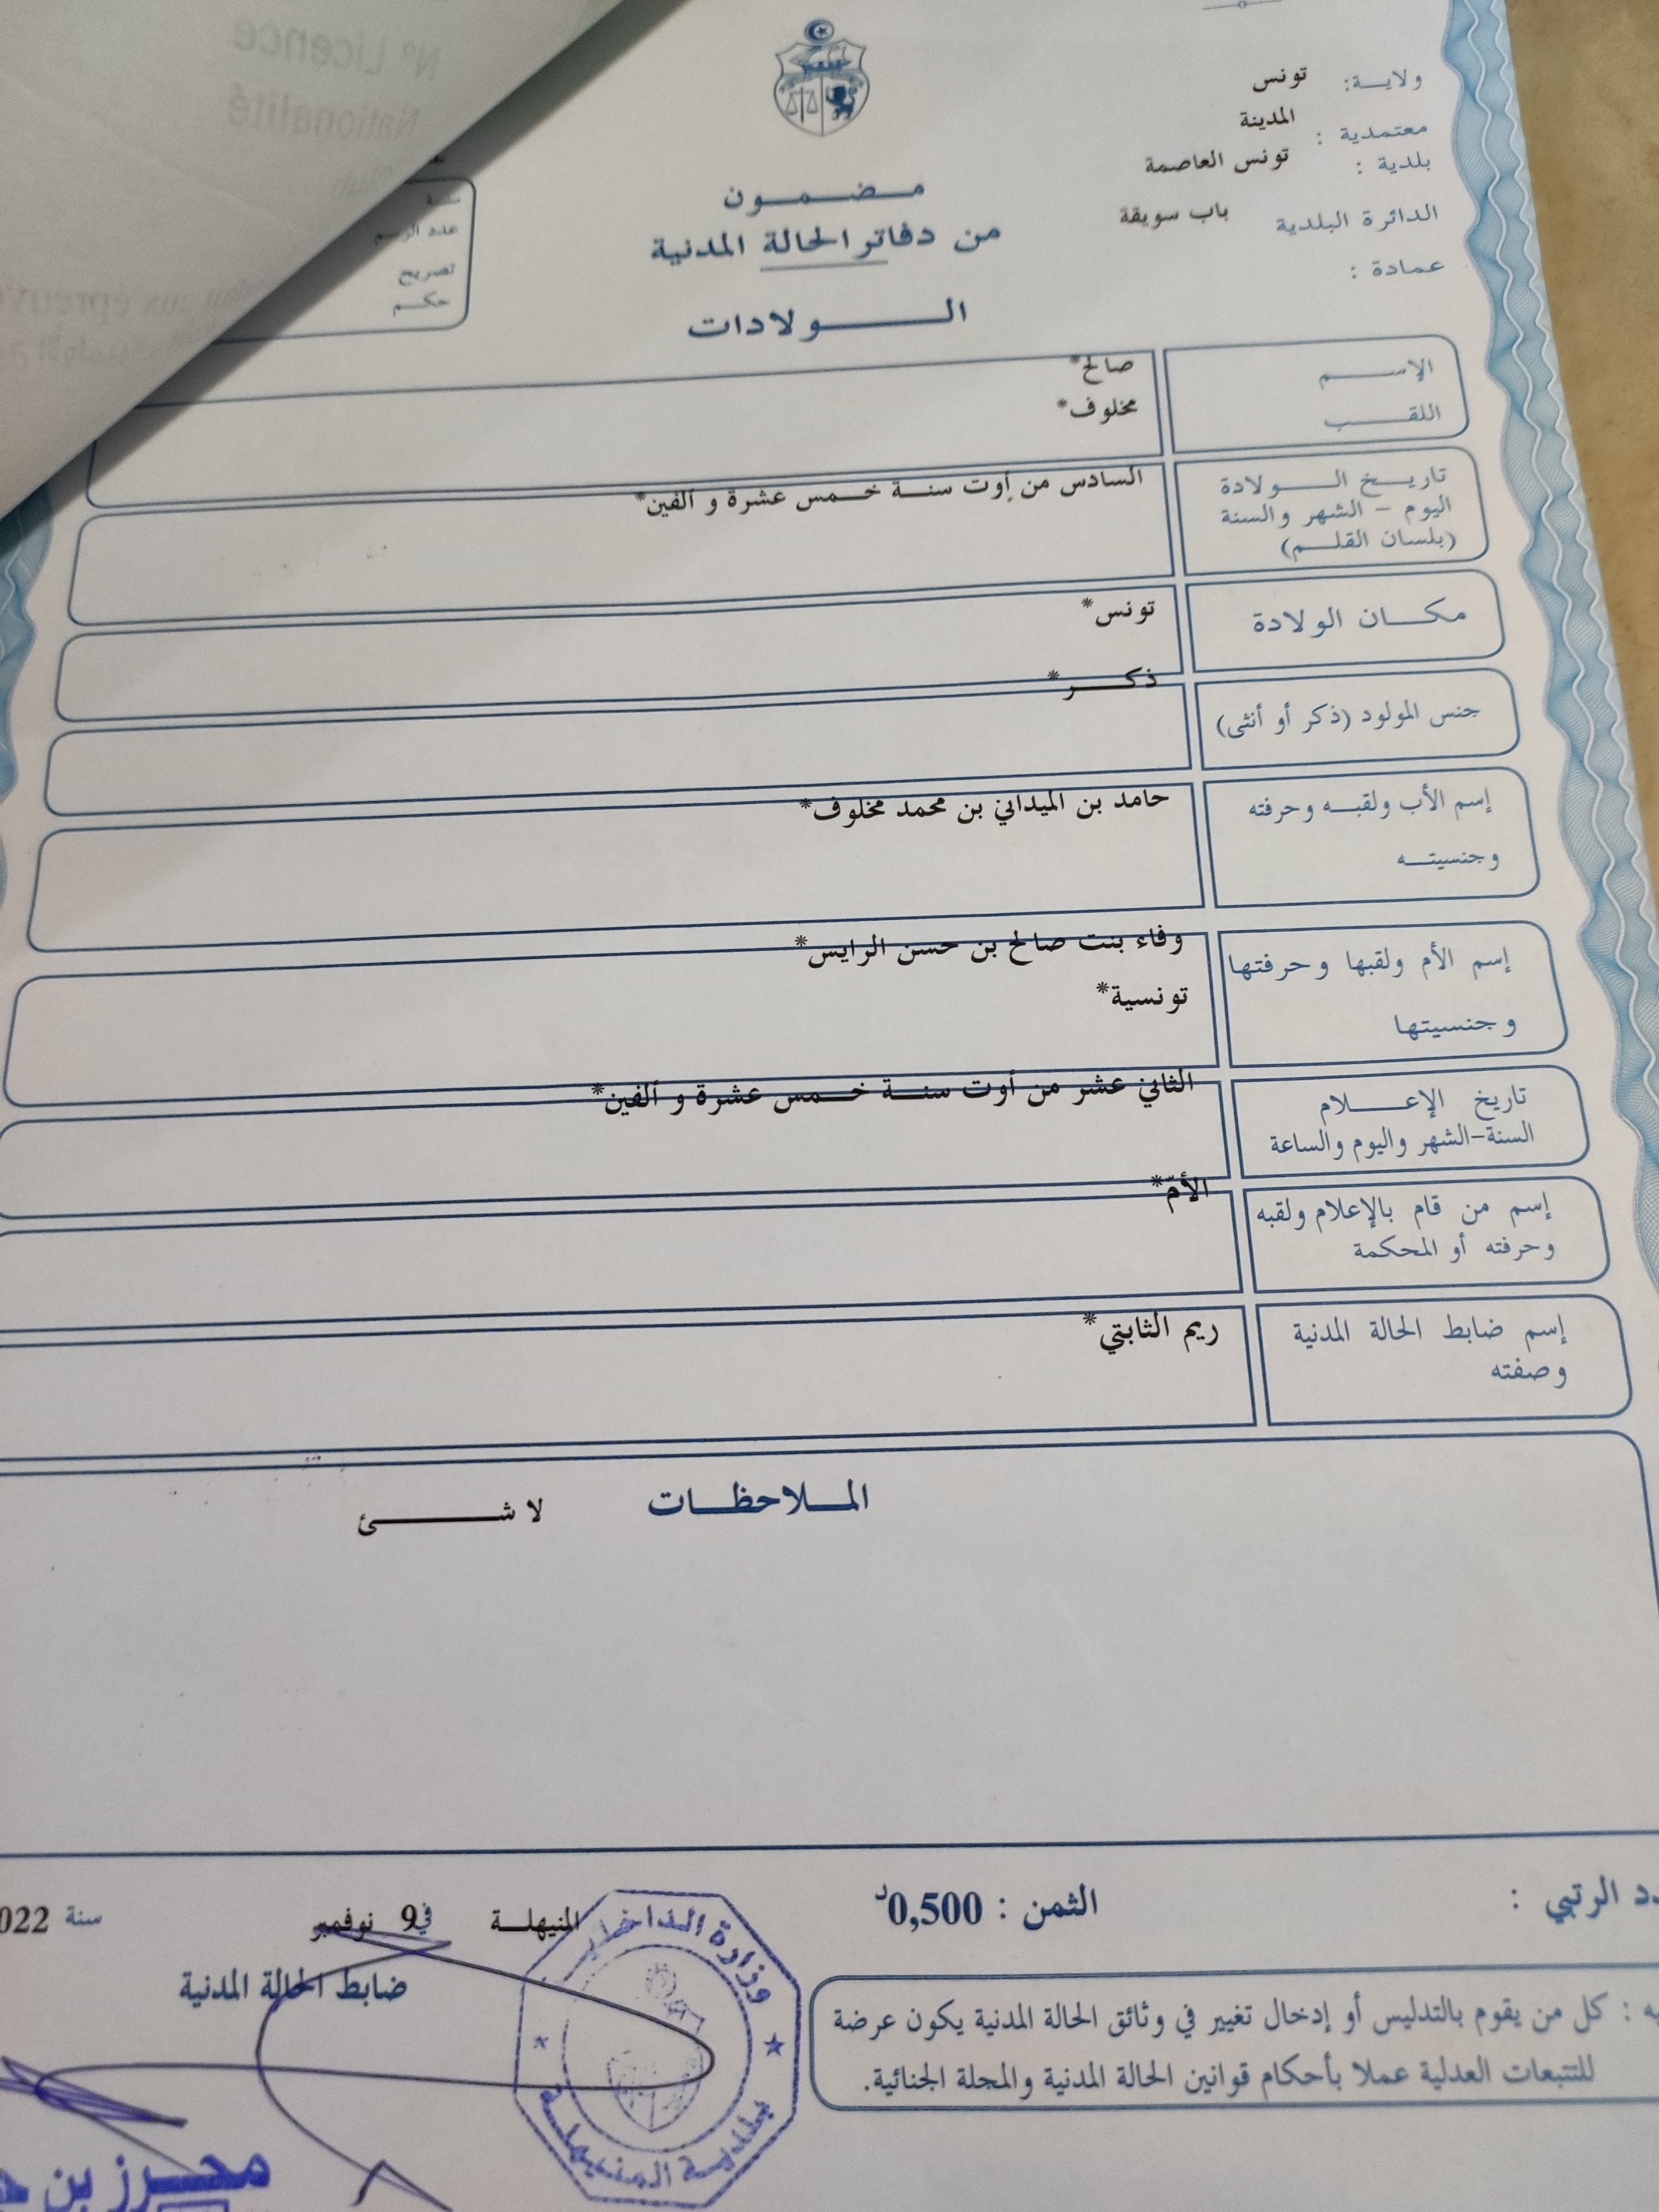 ولاية: تونس
معتمدية : المدينة
بلدية : تونس العاصمة
الدائرة البلدية باب سويقة
عمادة :
مضمون
من دفاتر الحالة المدنية
الولادات
N° Licence
Nationalité
عدد الرسم
تصريح
حكم
الإسم صالح*
اللقب مخلوف*
تاريخ الولادة السادس من أوت سنة خمس عشرة و ألفين*
اليوم - الشهر والسنة
(بلسان القلم)
مكان الولادة تونس*
جنس المولود (ذكر أو أنثى) ذكر*
إسم الأب ولقبه وحرفته حامد بن الميداني بن محمد مخلوف*
وجنسيته
إسم الأم ولقبها وحرفتها وفاء بنت صالح بن حسن الرايس*
وجنسيتها تونسية*
تاريخ الإعلام الثاني عشر من أوت سنة خمس عشرة و ألفين*
السنة-الشهر واليوم والساعة
إسم من قام بالإعلام ولقبه الأمّ*
وحرفته أو المحكمة
إسم ضابط الحالة المدنية ريم الثابتي*
وصفته
الملاحظات لا شئ
الرتبي :
الثمن : 0,500د
المنيهلة في 9 نوفمبر سنة 022
ضابط الحالة المدنية
وزارة الداخلية
بلدية المنيهلة
: كل من يقوم بالتدليس أو إدخال تغيير في وثائق الحالة المدنية يكون عرضة
للتتبعات العدلية عملا بأحكام قوانين الحالة المدنية والمجلة الجنائية.
محرز بن